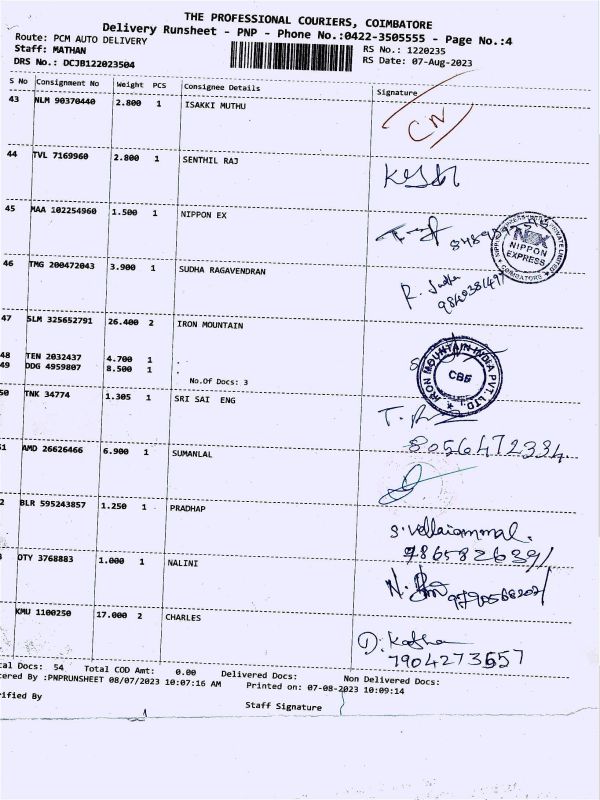 THE PROFESSIONAL COURIERS, COIMBATORE
Delivery Runsheet - PNP - Phone No.:0422-3505555 - Page No.:4
Route: PCM AUTO DELIVERY
RS No.: 1220235
Staff: MATHAN
RS Date: 07-Aug-2023
DRS No.: DCJB122023504
S No Consignment No Weight PCS Consignee Details Signature
43 NLM 90370440 2.800 1 ISAKKI MUTHU
CN
44 TVL 7169960 2.800 1 SENTHIL RAJ
45 MAA 102254960 1.500 1 NIPPON EX
NIPPON EXPRESS
COIMBATORE
46 TMG 200472043 3.900 1 SUDHA RAGAVENDRAN
R. Sudha
47 SLM 325652791 26.400 2 IRON MOUNTAIN
IRON MOUNTAIN INDIA PVT. LTD.
CBE
48 TEN 2032437 4.700 1
49 DDG 4959807 8.500 1
No.Of Docs: 3
50 TNK 34774 1.305 1 SRI SAI ENG
8056472334
51 AMD 26626466 6.900 1 SUMANLAL
2 BLR 595243857 1.250 1 PRADHAP
S. Vellaiammal.
9865826391
3 OTY 3768883 1.000 1 NALINI
KMU 1100250 17.000 2 CHARLES
7904273557
tal Docs: 54 Total COD Amt: 0.00 Delivered Docs: Non Delivered Docs:
tered By :PNPRUNSHEET 08/07/2023 10:07:16 AM Printed on: 07-08-2023 10:09:14
rified By Staff Signature